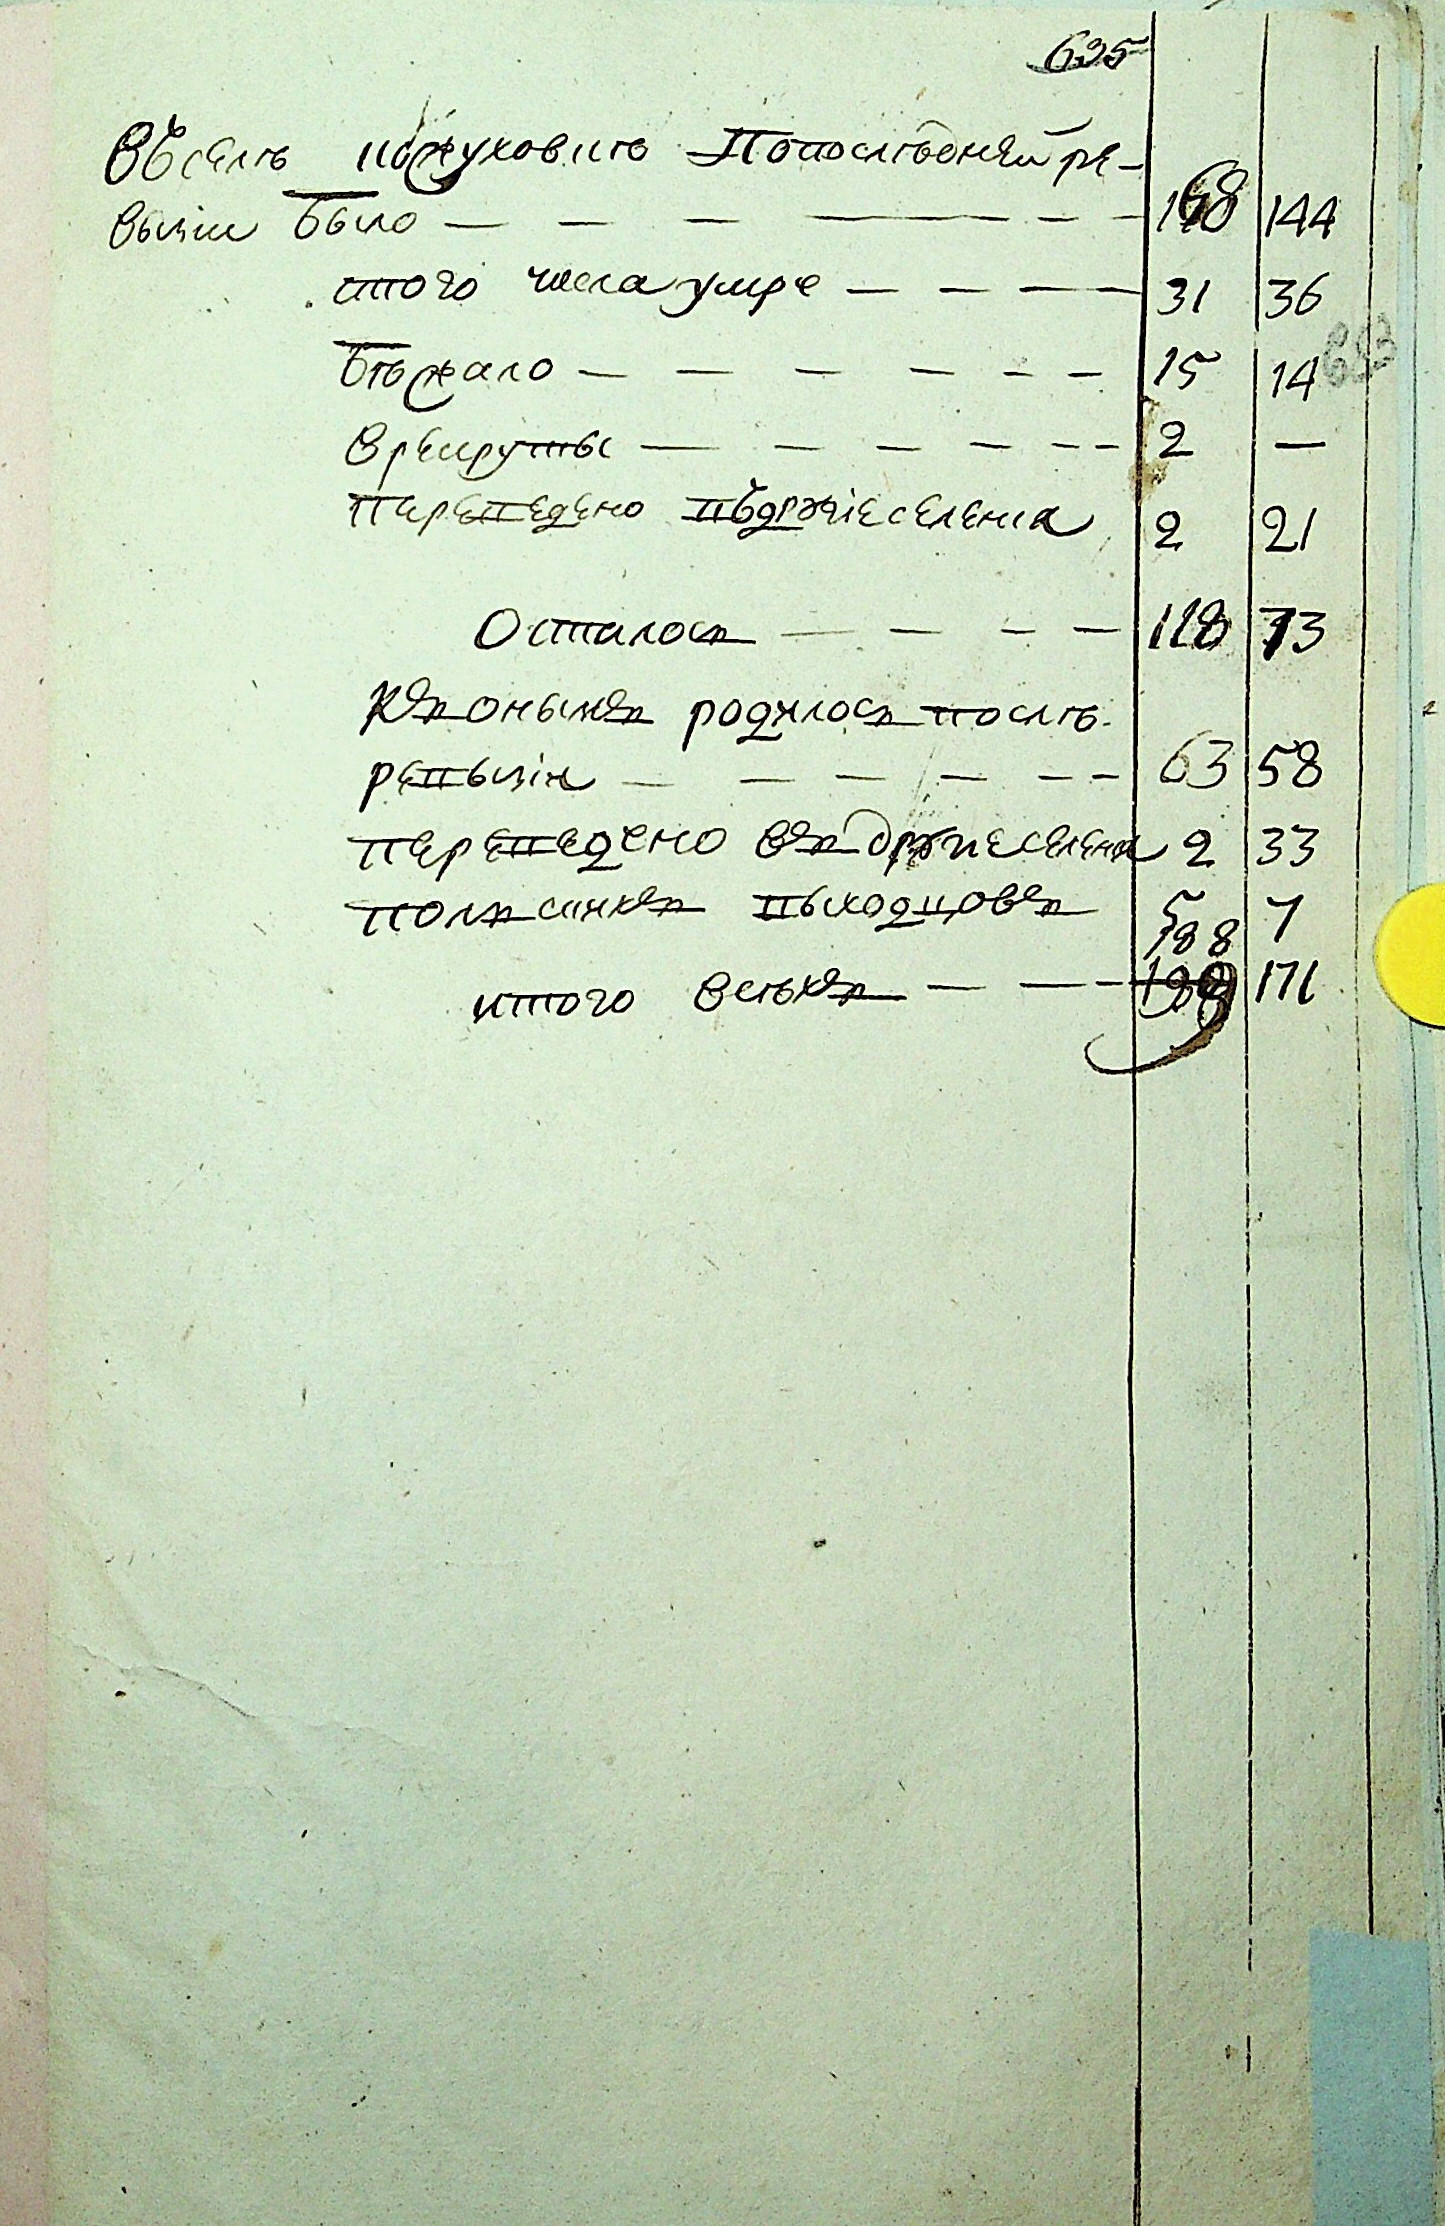 625
Въселѣ кожуховкѣ Попослѣдней ре-
визіи было — — — — — — 168 144
стого числа умре — — — — 31 36
бѣжало — — — — — — 15 14
врекруты — — — — — — 2 —
переведено въдругіе селения 2 21
Осталось — — — — 118 73
Къ онымъ родилось послѣ
ревизіи — — — — — — 63 58
переведено въ другие селени 2 33
польскихъ выходцовъ 5 7
188
итого всѣхъ — — — 171